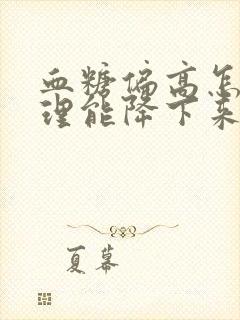 血糖偏高怎
理能降下来
夏幕